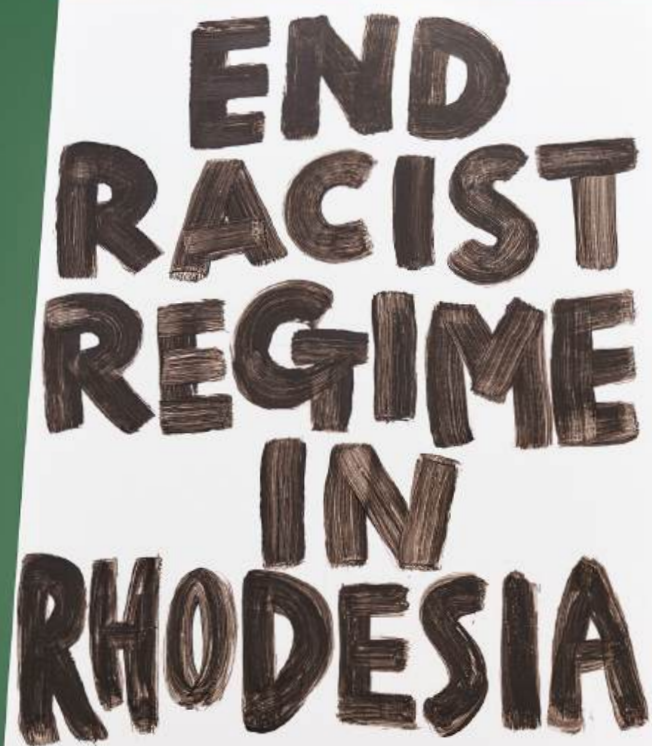 END
RACIST
REGIME
IN
RHODESIA